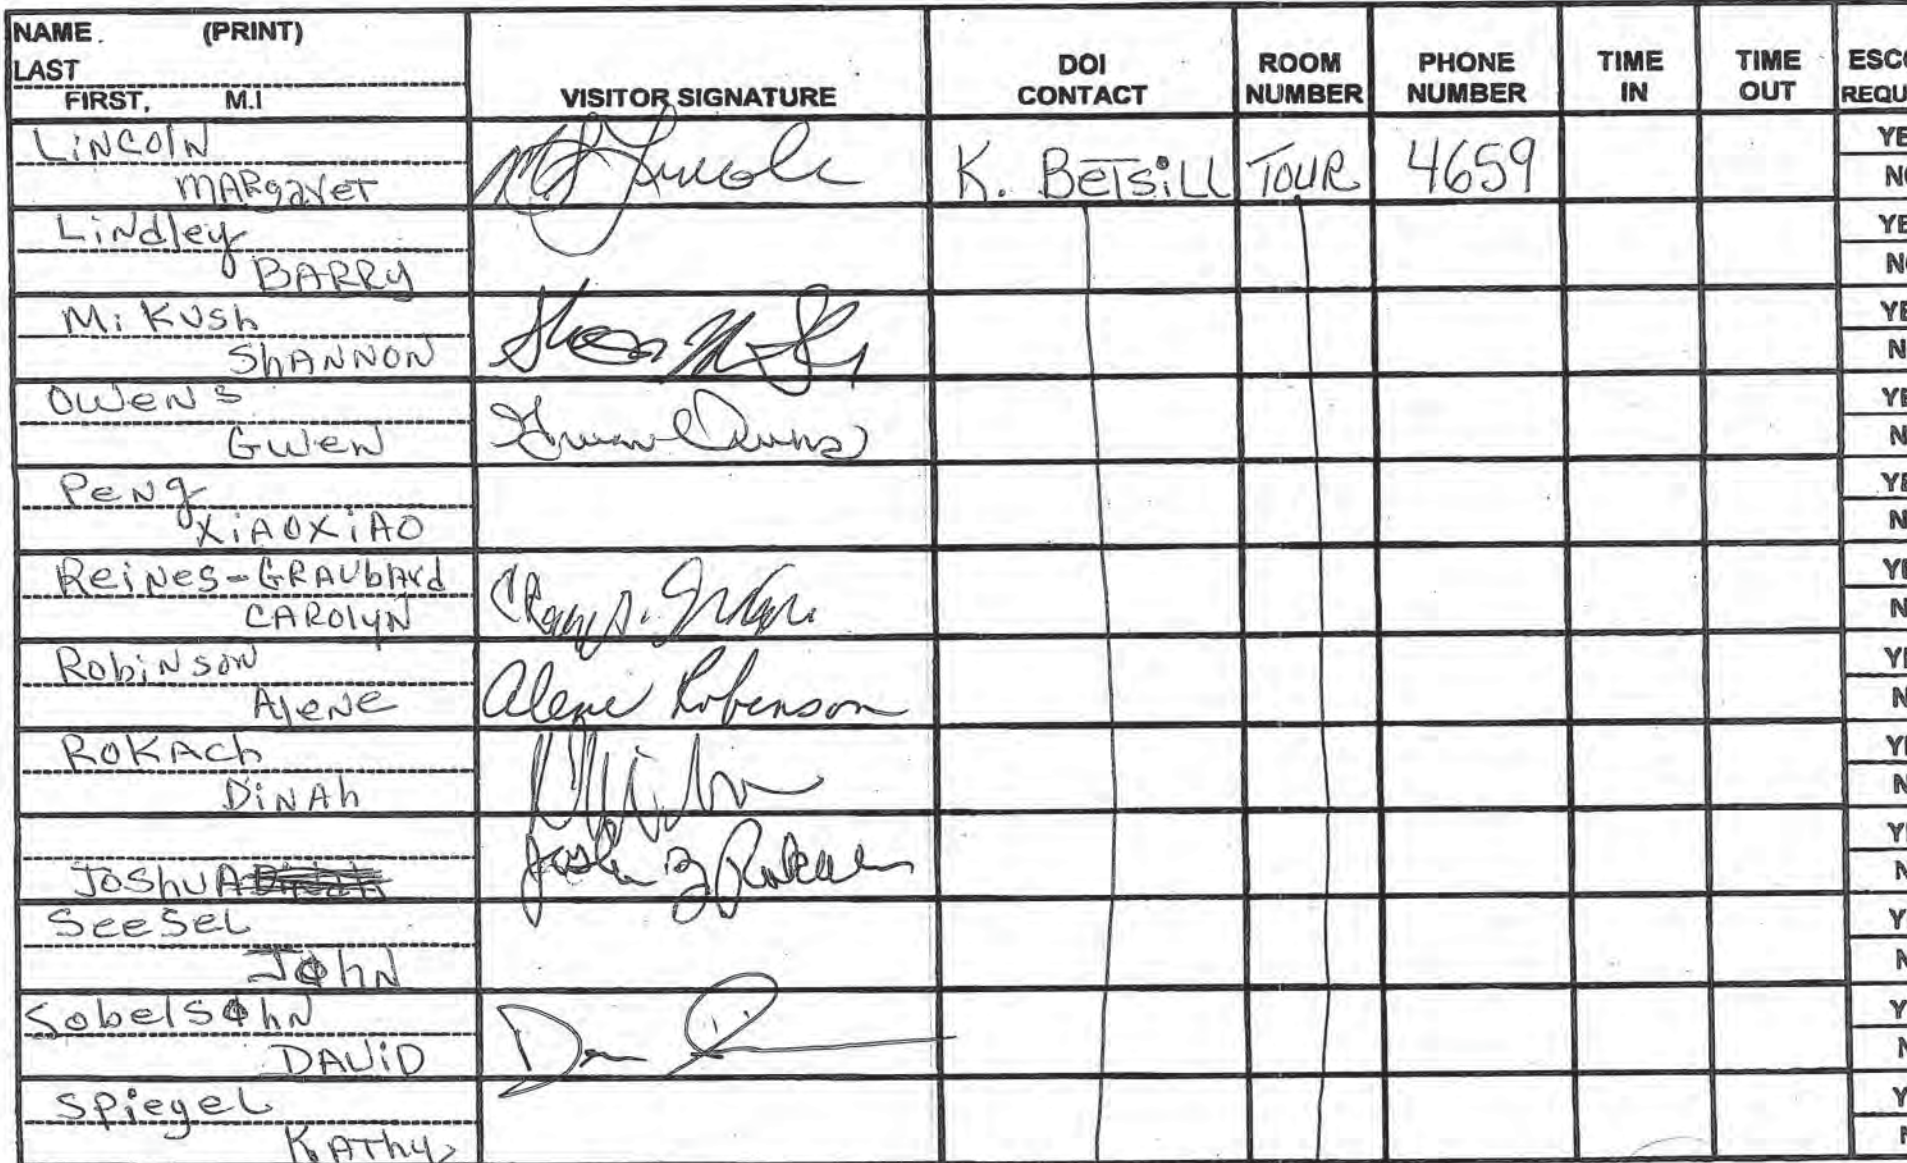 NAME. (PRINT)
LAST
FIRST, M.I
VISITOR SIGNATURE
DOI CONTACT
ROOM NUMBER
PHONE NUMBER
TIME IN
TIME OUT
LiNCOlN
MARgaret
K. BETSiLL TOUR 4659
LiNdley
BARRy
MiKUSh
ShANNON
OWeNS
GWeN
Gwen Owens
PeNg
XiAOXiAO
ReiNes-GRAUbARd
CAROlyN
RobiNsoN
AleNe
Alene Robinson
ROKACh
DiNAh
JOShUA
SeeSeL
JOhN
SobelSOhN
DAViD
SPiegeL
KAThy